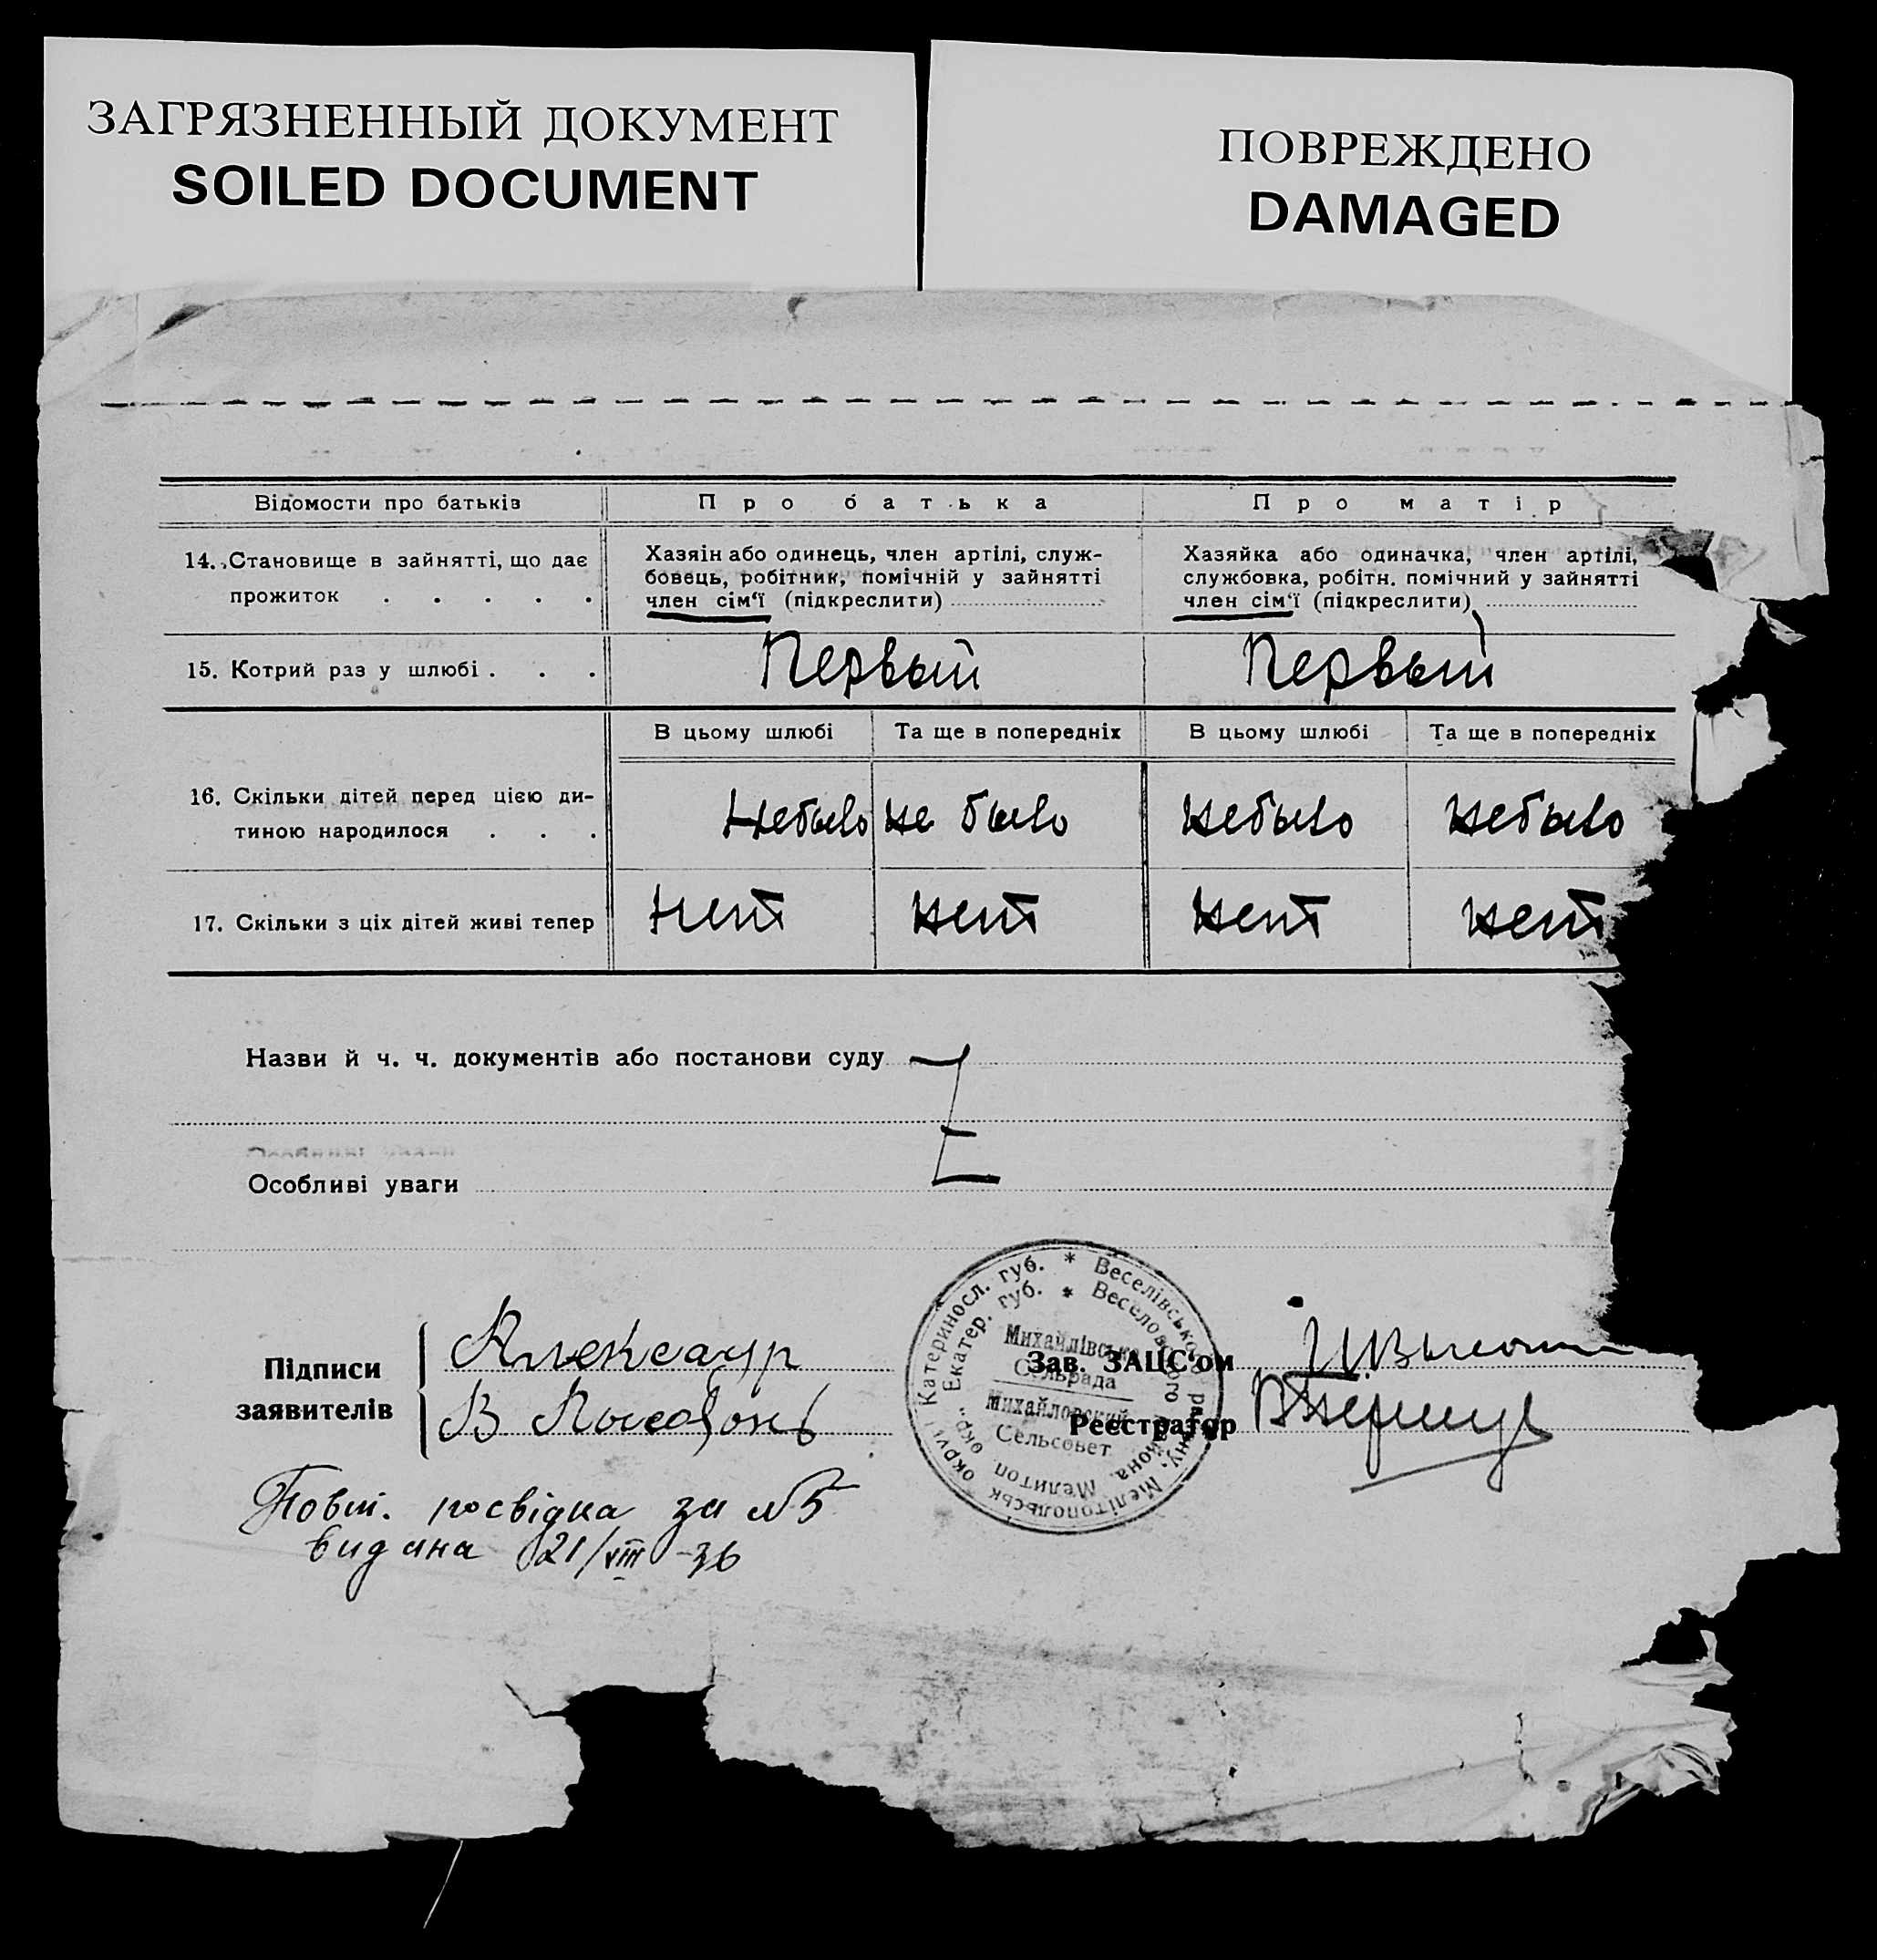 ЗАГРЯЗНЕННЫЙ ДОКУМЕНТ
SOILED DOCUMENT
ПОВРЕЖДЕНО
DAMAGED
Відомости про батьків
Про батька
Про матір
14. Становище в зайнятті, що дає
прожиток . . . . .
Хазяін або одинець, член артілі, служ-
бовець, робітник, помічній у зайнятті
член сім'ї (підкреслити)
Хазяйка або одиначка, член артілі,
службовка, робітн. помічний у зайнятті
член сім'ї (підкреслити)
15. Котрий раз у шлюбі . . .
Первый
Первый
В цьому шлюбі
Та ще в попередніх
В цьому шлюбі
Та ще в попередніх
16. Скільки дітей перед цією ди-
тиною народилося . . .
Небыло
не было
небыло
небыло
17. Скільки з ціх дітей живі тепер
нет
нет
нет
нет
Назви й ч. ч. документів або постанови суду
Особливі уваги
Підписи
заявителів
Александр
В
Зав. ЗАЦС'ом
Реєстратор
* Веселівського району, Мелітопольськ округи Катериносл. губ.
* Веселовского района, Мелитоп. окр. Екатер. губ.
Михайлівська
Сельрада
Михайловский
Сельсовет
Повт. посвідка за №5
видана 21/VIII-36